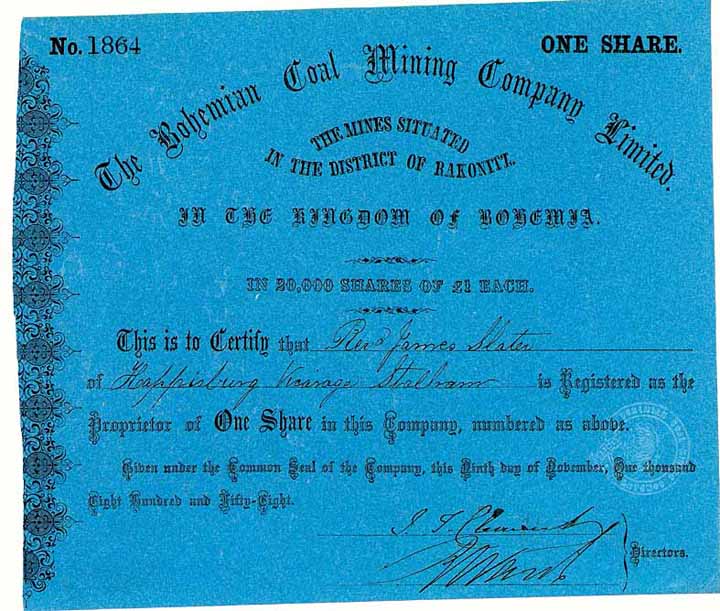 No. 1864
ONE SHARE.
The Bohemian Coal Mining Company Limited.
THE MINES SITUATED
IN THE DISTRICT OF RAKONITZ.
IN THE KINGDOM OF BOHEMIA.
IN 20,000 SHARES OF £1 EACH.
This is to Certify that Revd James Slater
of Happisburg Vicarage Stalham is Registered as the
Proprietor of One Share in this Company, numbered as above.
Given under the Common Seal of the Company, this Ninth day of November, One thousand
Eight Hundred and Fifty-Eight.
Directors.